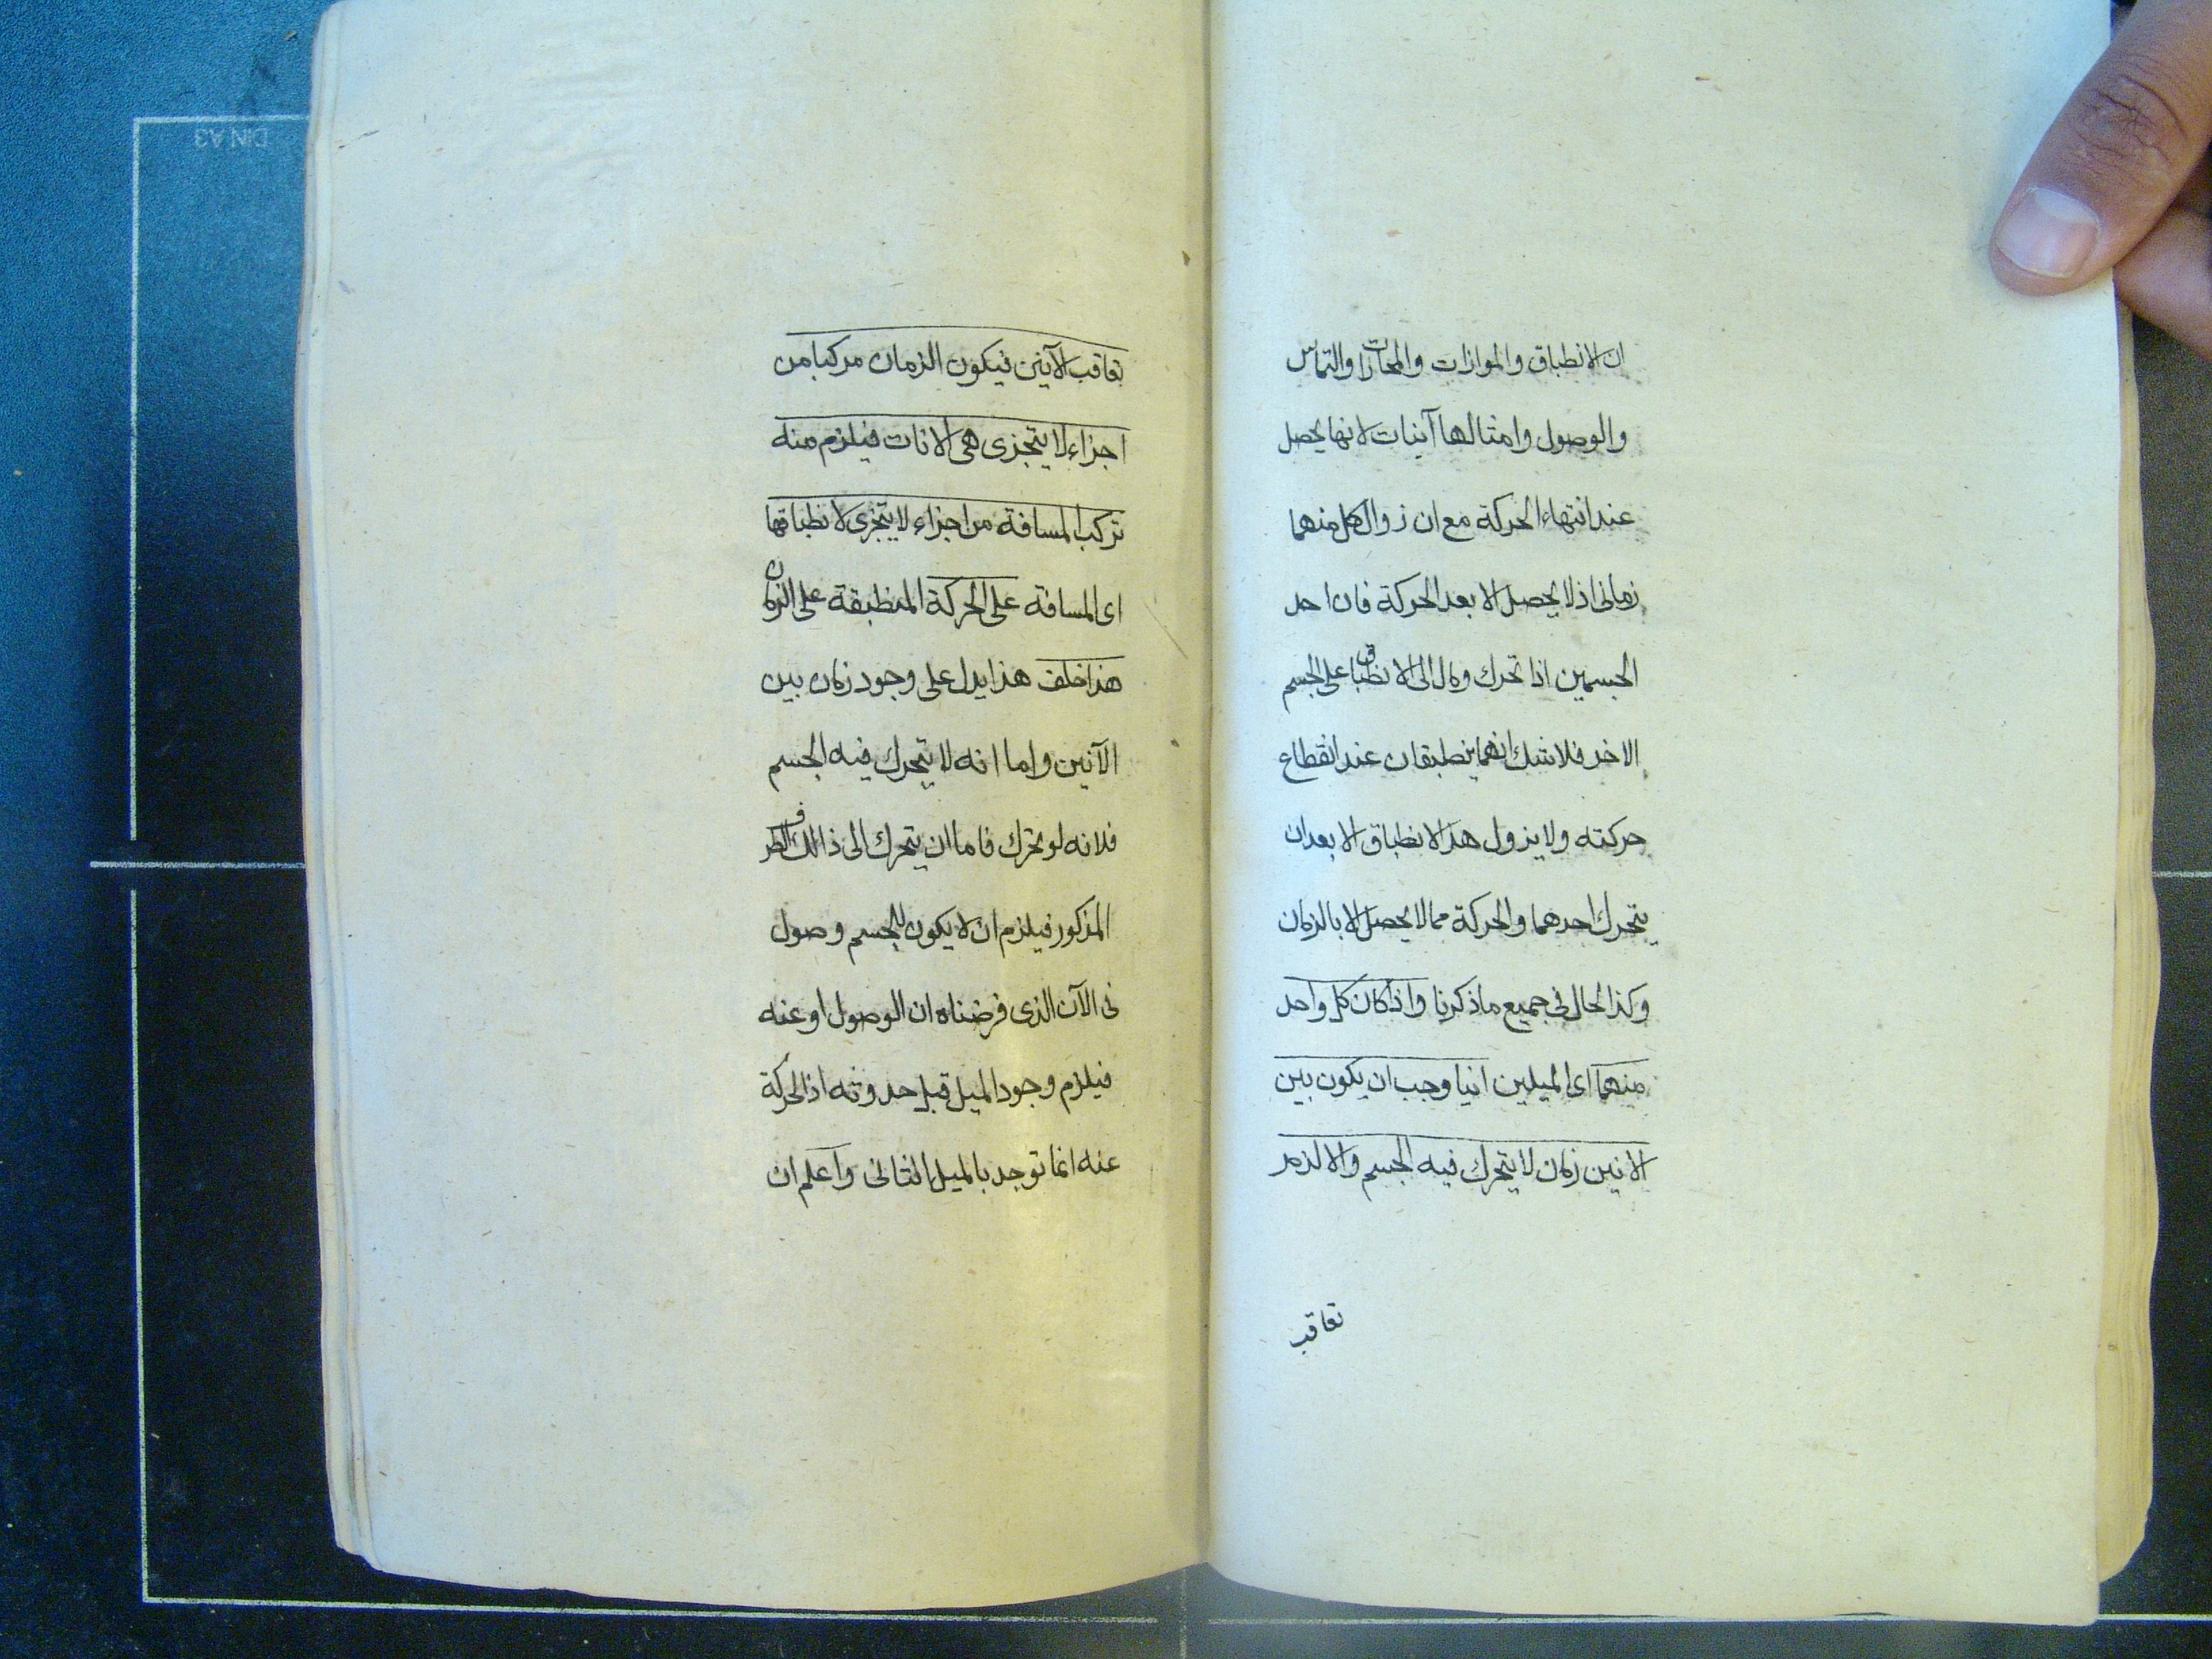 ان الانطباق والموازات والمحازات والتماس
والوصول وامثالها آنيات لانها يحصل
عند انتهاء الحركة مع ان زوال كل منهما
زمانى اذ لا يحصل الا بعد الحركة فان احد
الجسمين اذا تحرك ومال الى الانطباق على الجسم
الاخر فلا شك انهما ينطبقان عند انقطاع
حركته ولا يزول هذ الانطباق الا بعد ان
يتحرك احدهما والحركة مما لا يحصل الا بالزمان
وكذا الحال فى جميع ما ذكرنا واذا كان كل واحد
منهما اى الميلين انيا وجب ان يكون بين
الانين زمان لا يتحرك فيه الجسم والا لزم
تعاقب
تعاقب الآنين فيكون الزمان مركبا من
اجزاء لا يتجزى هى الانات فيلزم منه
تركب المسافة من اجزاء لا يتجزى لانطباقها
اى المسافة على الحركة المنطبقة على الزمان
هذا خلف هذا يدل على وجود زمان بين
الآنين واما انه لا يتحرك فيه الجسم
فلانه لو تحرك فاما ان يتحرك الى ذالك الطرف
المذكور فيلزم ان لا يكون للجسم وصول
فى الآن الذى فرضناه ان الوصول او عنه
فيلزم وجود الميل قبل حدوثه اذ الحركة
عنه انما توجد بالميل الثانى واعلم ان
DIN A3